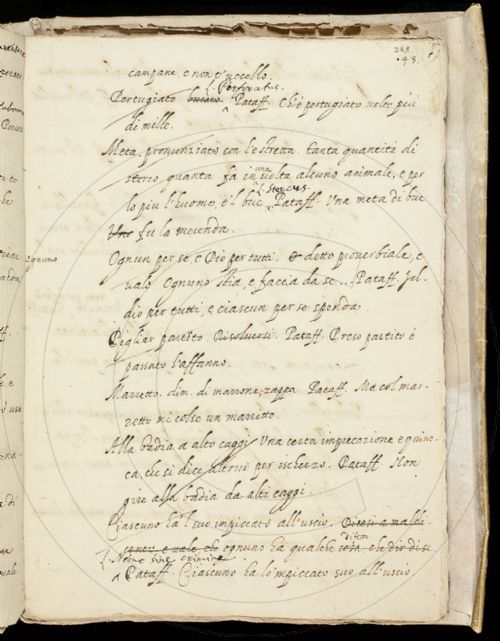 243
43.
campane, e non è uccello.
l. Perforatus.
Pertugiato bucato Pataff. Ch'è pertugiato volte più
di mille.
Meta. pronunziato con l'e stretta. tanta quantità di
sterco, quanta fa in una volta alcuno animale, e per
l. stercus.
lo più l'huomo, e 'l bue. Pataff. Una meta di bue
fu la merenda.
Ognun per se, e Dio per tutti. è detto proverbiale, e
vale ognuno stia, e faccia da se. Pataff. Id-
dio per tutti, e ciascun per se spenda.
Pigliar partito. Risolversi. Pataff. Preso partito è
passato l'affanno.
Marretto. dim. di marrone, zappa. Pataff. Ma col mar-
retto mi colse un marritto.
Alla badia a alto caggi. Una certa imprecazione equivo-
ca, che si dice altrui per ischerzo. Pataff. Non
gire alla badia da alti caggi.
Ciascuno ha l suo impiccato all'uscio. Dicesi a
e vale che ognuno ha qualche cosa, che dir di se
difetto
l. Nemo sine crimine.
Pataff. Ciascuno ha lo impiccato suo all'uscio
ognuno